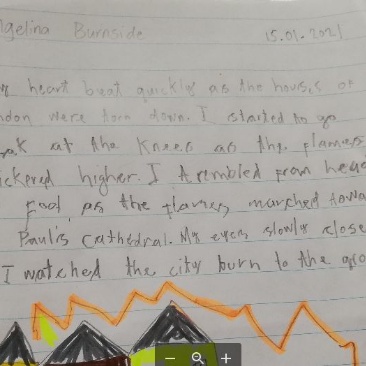 ngelina Burnside 15.01.2021
heart beat quickly as the houses of
ndon were torn down. I started to go
ak at the knees as the flames
ickered higher. I trembled from head
foot as the flames marched towa
Paul's Cathedral. My eyes slowly close
I watched the city burn to the gro